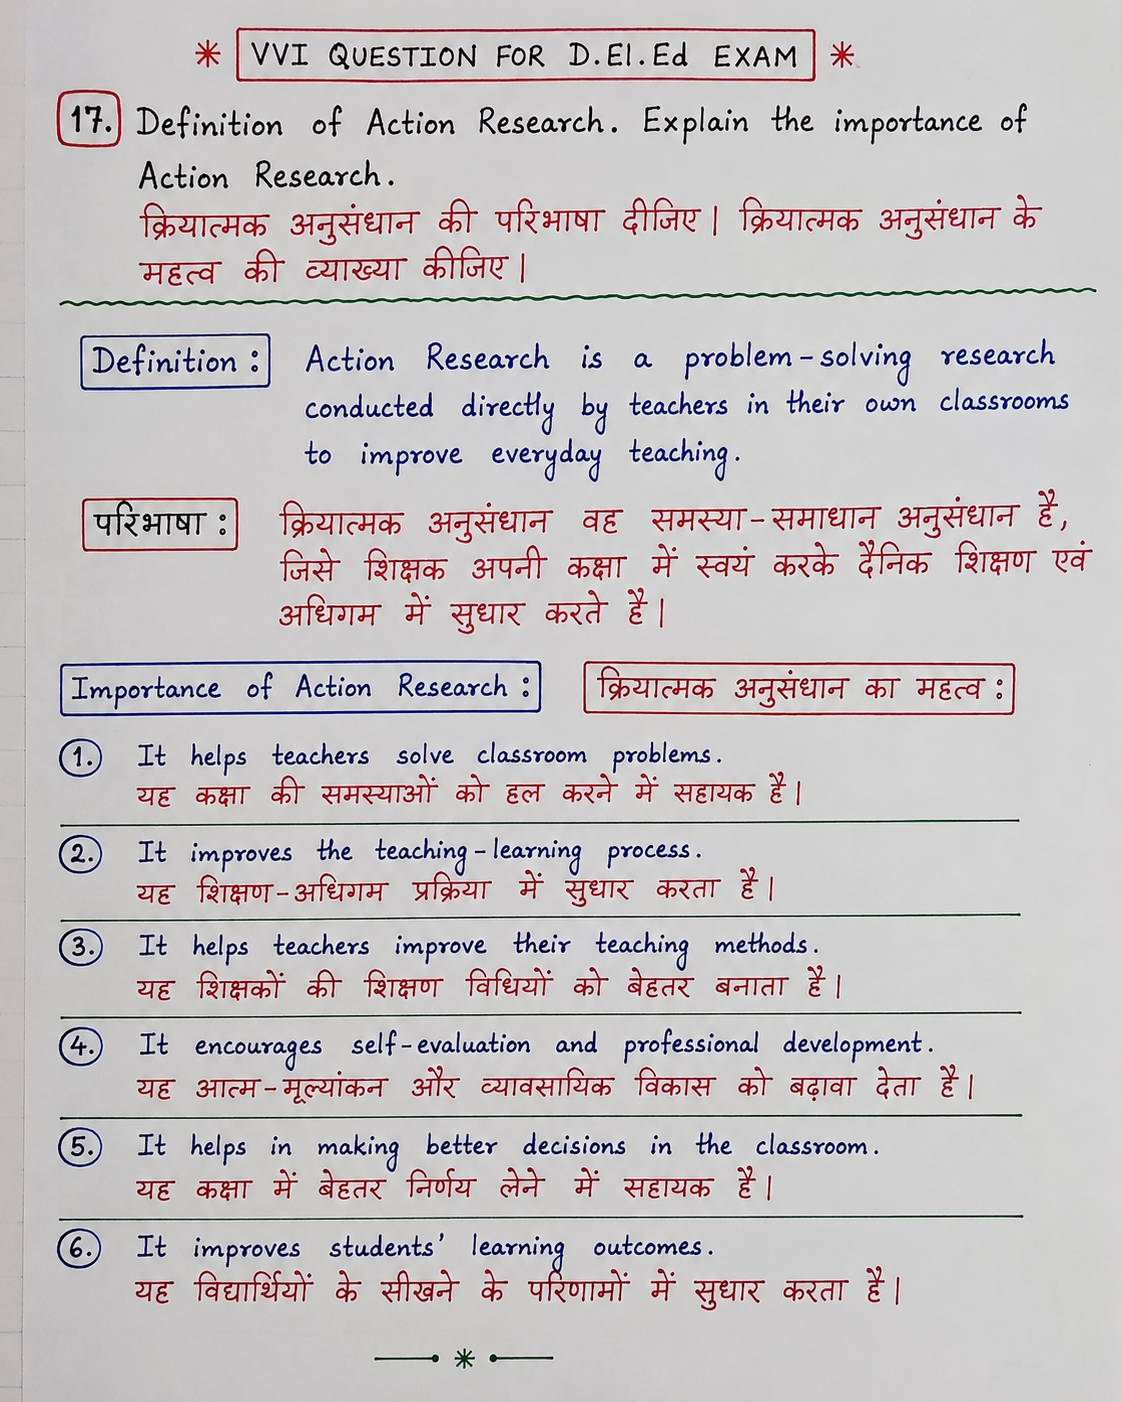 * VVI QUESTION FOR D.El.Ed EXAM *
17. Definition of Action Research. Explain the importance of
Action Research.
क्रियात्मक अनुसंधान की परिभाषा दीजिए। क्रियात्मक अनुसंधान के
महत्व की व्याख्या कीजिए।
Definition : Action Research is a problem-solving research
conducted directly by teachers in their own classrooms
to improve everyday teaching.
परिभाषा : क्रियात्मक अनुसंधान वह समस्या-समाधान अनुसंधान है,
जिसे शिक्षक अपनी कक्षा में स्वयं करके दैनिक शिक्षण एवं
अधिगम में सुधार करते है।
Importance of Action Research : क्रियात्मक अनुसंधान का महत्व :
1. It helps teachers solve classroom problems.
यह कक्षा की समस्याओं को हल करने में सहायक है।
2. It improves the teaching-learning process.
यह शिक्षण-अधिगम प्रक्रिया में सुधार करता है।
3. It helps teachers improve their teaching methods.
यह शिक्षकों की शिक्षण विधियों को बेहतर बनाता है।
4. It encourages self-evaluation and professional development.
यह आत्म-मूल्यांकन और व्यावसायिक विकास को बढ़ावा देता है।
5. It helps in making better decisions in the classroom.
यह कक्षा में बेहतर निर्णय लेने में सहायक है।
6. It improves students' learning outcomes.
यह विद्यार्थियों के सीखने के परिणामों में सुधार करता है।